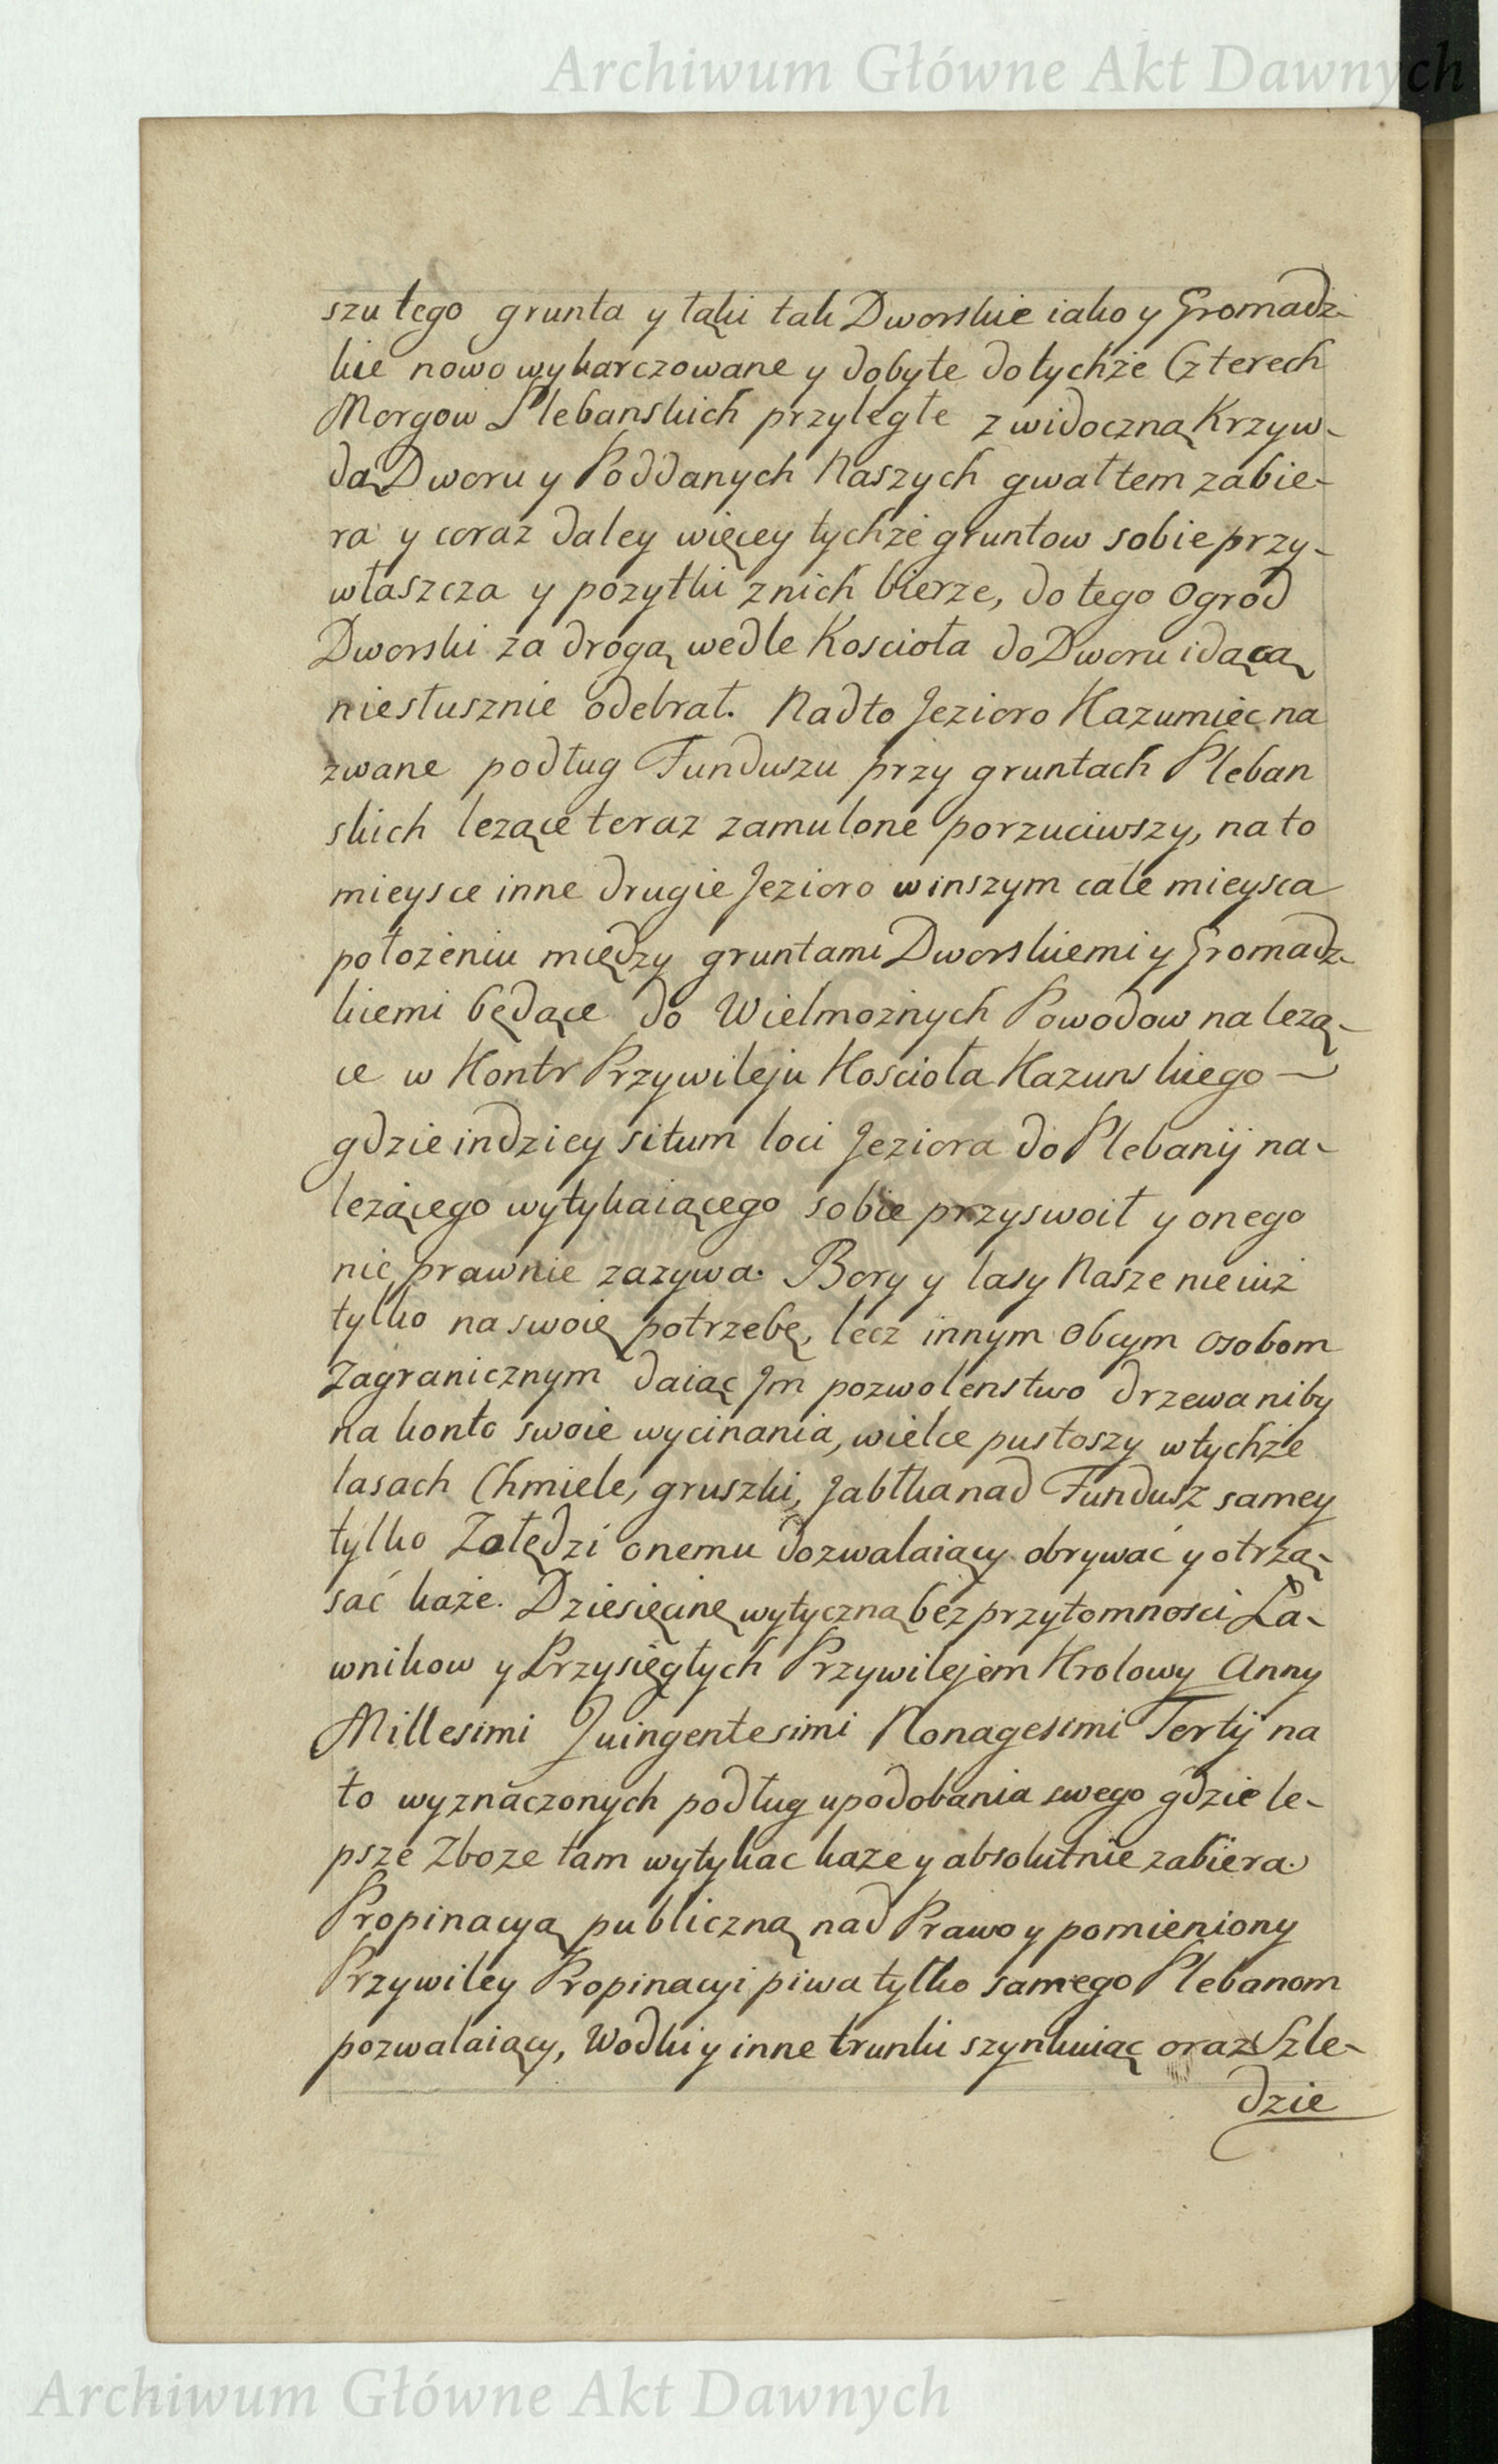 Archiwum Główne Akt Dawnych
szu tego grunta y łąki tak Dworskie iako y Gromadz-
kie nowo wykarczowane y dobyte do tychże Czterech
Morgow Plebanskich przyległe z widoczną Krzyw-
dą Dworu y Poddanych Naszych gwałtem zabie-
ra y coraz daley więcey tychże gruntow sobie przy-
właszcza y pozytki z nich bierze, do tego Ogrod
Dworski za drogą wedle Koscioła do Dworu idącą
niesłusznie odebrał. Nadto Jezioro Kazumiec na
zwane podług Funduszu przy gruntach Pleban
skich leząće teraz zamulone porzuciwszy, na to
mieysce inne drugie Jezioro w inszym cale mieysca
położeniu między gruntami Dworskiemi y Gromadz-
kiemi będące do Wielmożnych Powodow nalezą-
ce w Kontr Przywileju Koscioła Kazunskiego —
gdzieindziey situm loci Jeziora do Plebanij na-
leżącego wytykaiącego sobie przyswoił y onego
nie prawnie zazywa. Bory y lasy Nasze nie iuż
tylko na swoię potrzebę, lecz innym Obcym osobom
Zagranicznym daiąc Jm pozwolenstwo drzewa niby
na konto swoie wycinania, wielce pustoszy w tychże
lasach Chmiele, gruszki, Jabłka nad Fundusz samey
tylko Zołędzi onemu dozwalaiący obrywać y otrzą-
sać każe. Dziesięcinę wytyczną bez przytomnosci Ła-
wnikow y Przysięgłych Przywilejem Krolowy Anny
Millesimi Quingentesimi Nonagesimi Tertij na
to wyznaczonych podług upodobania swego gdzie le-
psze Zboze tam wytykac kaze y absolutnie zabiera.
Propinacyą publiczną nad Prawo y pomieniony
Przywiley Propinacyi piwa tylko samego Plebanom
pozwalaiący, Wodki y inne trunki szynkuiąc oraz Szle-
dzie
Archiwum Główne Akt Dawnych